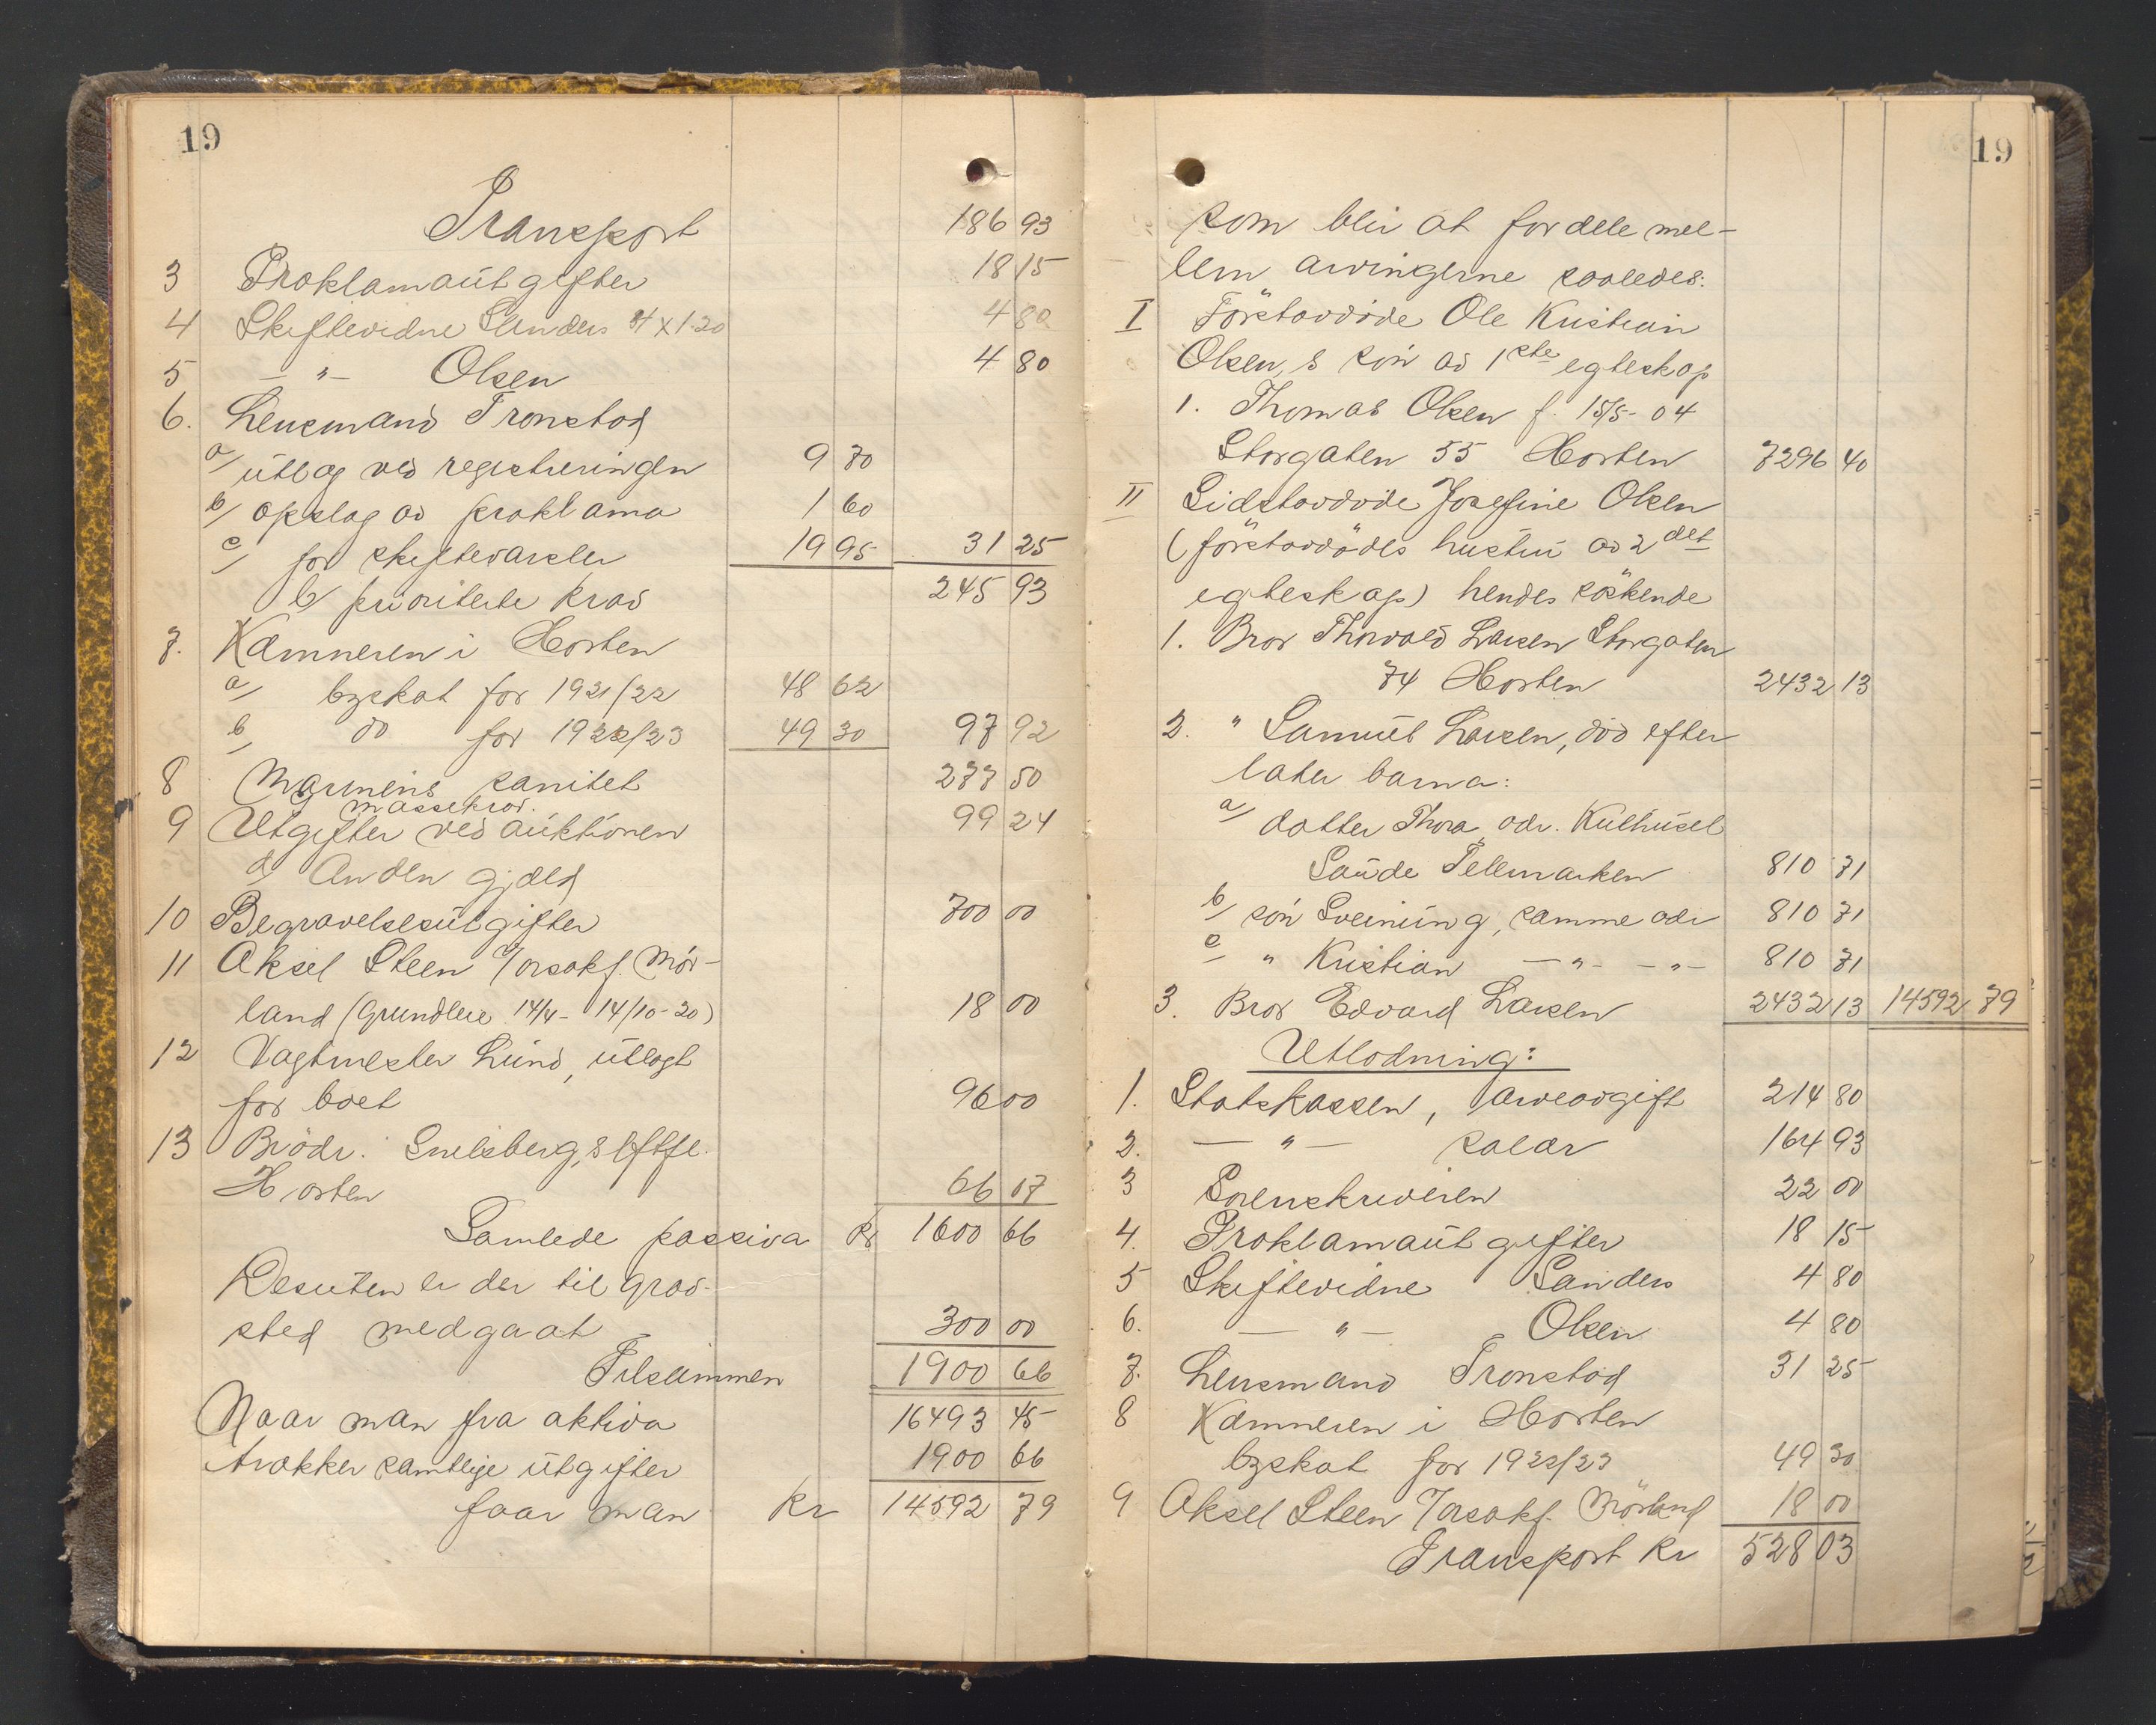 19
Transport 186 93
3 Proklamautgifter 18 15
4 Skiftevidne Sanders 4 x 1.20 4 80
5 — " — Olsen 4 80
6. Lensmand Tronstad
a/ utlag ved registreringen 9 70
b/ opslag av proklama 1 60
c/ for skiftevarsler 19 95 31 25
b/ prioriterte krav 245 93
7. Kæmneren i Horten
a/ byskat for 1921/22 48 62
b/ do for 1922/23 49 30 97 92
8 Marinens sanitet 277 50
massekrav.
9 Utgifter ved auktionen 99 24
d/ Anden gjæld
10 Begravelsesutgifter 700 00
11 Aksel Steen /orsakf. Mör-
land (Grundleie 14/4 - 14/10-20) 18 00
12 Vagtmester Lund, utlagt
for boet 96 00
13 Brödr. Snelsberg,s Eftfl.
Horten 66 07
Samlede passiva kr 1600 66
Desuten er der til grav-
sted medgaat 300 00
Tilsammen 1900 66
Naar man fra aktiva 16493 45
trækker samtlige utgifter 1900 66
faar man kr 14592 79
19
som blir at fordele mel-
lem arvingerne saaledes:
I Förstavdöde Ole Kristian
Olsen,s sön av 1ste egteskap
1. Thomas Olsen f. 15/5-04
Storgaten 55 Horten 7296 40
II Sidstavdöde Josefine Olsen
(förstavdödes hustru av 2det
egteskap) hendes söskende
1. Bror Thorvald Larsen Storgaten
74 Horten 2432 13
2. " Samuel Larsen, död efter
later barna:
a/ datter Thora, adr. Kulhuset
Saude Telemarken 810 71
b/ sön Sveinung, samme adr 810 71
c/ " Kristian — " — — " — 810 71
3. Bror Edvard Larsen 2432 13 14592 79
Utlodning:
1. Statskassen, arveavgift 214 80
2. — " — salær 164 93
3 Sorenskriveren 22 00
4. Proklamautgifter 18 15
5 Skiftevidne Sanders 4 80
6. — " — Olsen 4 80
7. Lensmand Tronstad 31 25
8 Kæmneren i Horten
byskat for 1922/23 49 30
9 Aksel Steen /orsakf. Mörland 18 00
Transport kr 528 03